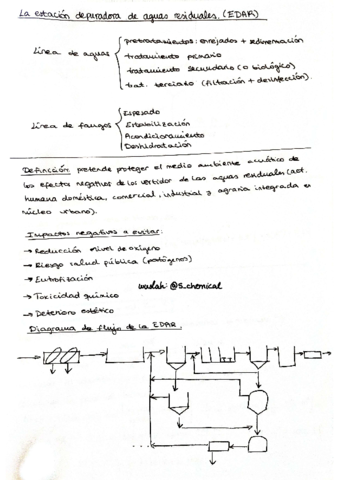 La estación depuradora de aguas residuales. (EDAR)
Línea de aguas
pretratamientos: enrejados + sedimentación
tratamiento primario
tratamiento secundario (o biológico)
trat. terciario (filtración + desinfección).
Línea de fangos
Espesado
Estabilización
Acondicionamiento
Deshidratación
Definición: pretende proteger el medio ambiente acuático de
los efectos negativos de los vertidos de las aguas residuales (act.
humana doméstica, comercial, industrial y agraria integrada en
núcleo urbano).
Impactos negativos a evitar:
→ Reducción nivel de oxígeno
→ Riesgo salud pública (patógenos)
→ Eutrofización
wuolah: @S.chemical
→ Toxicidad química
→ Deterioro estético
Diagrama de flujo de la EDAR.